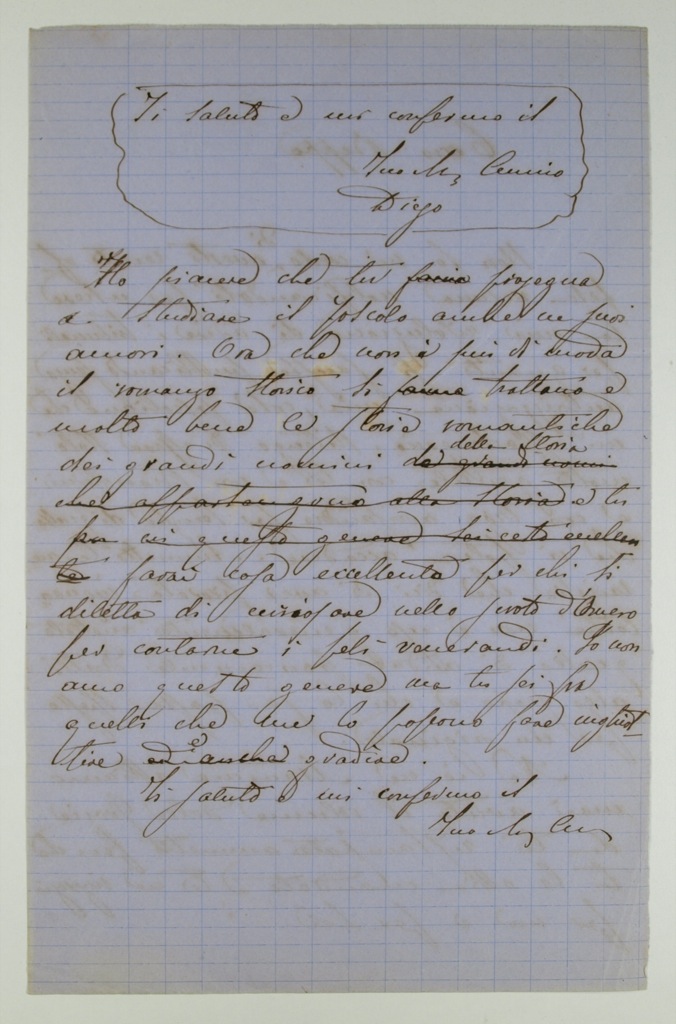 Ti saluto e mi confermo il
Tuo
Diego
Ho piacere che tu faccia prosegua
a studiare il Foscolo anche ne suoi
amori. Ora che non è più di moda
il romanzo storico si fanno trattano e
molto bene le storie romantiche
della storia
dei grandi uomini de grandi uomini
che appartengono alla storia e tu
per in questo genere sei certo eccellen
te farai cosa eccellente per chi si
diletta di curiosare nello scroto d'Omero
per contarne i peli venerandi. Io non
amo questo genere ma tu sei fra
quelli che me lo possono fare inghiot
tire ed anche e gradire.
Ti saluto e mi confermo il
Tuo